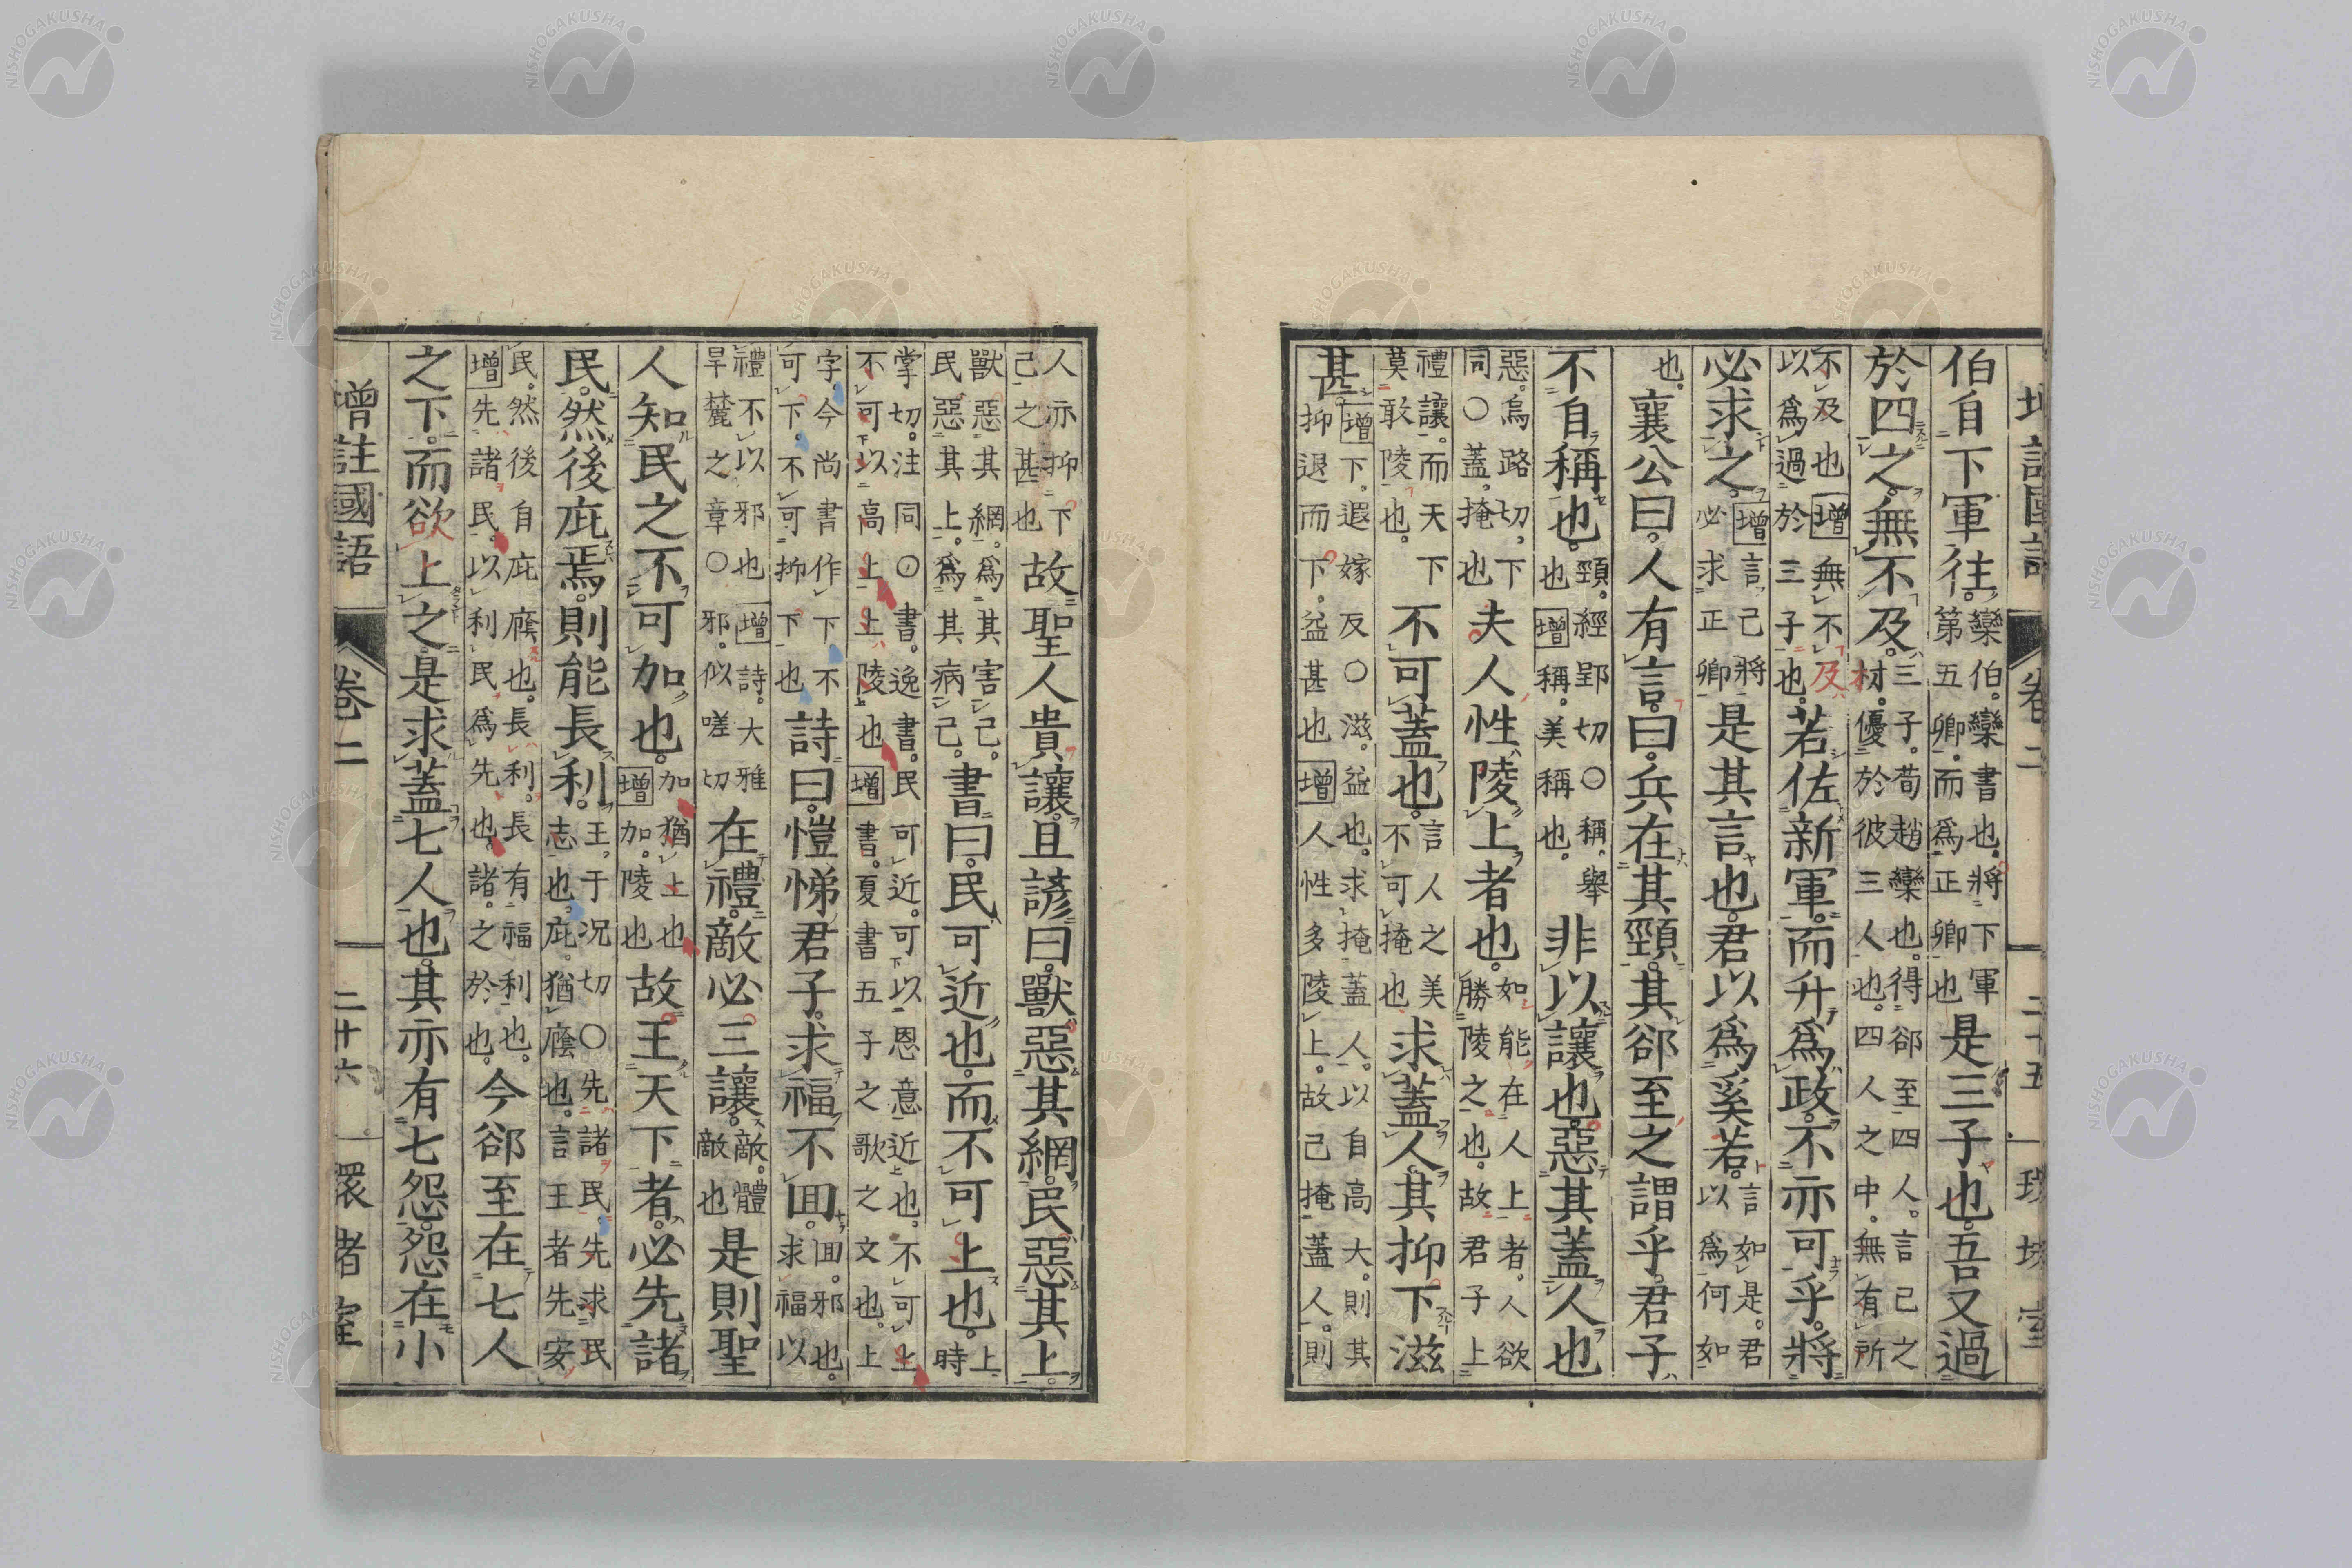 増註國語 卷二 二十五
伯自下軍往。欒伯。欒書也。將下軍第五卿。而爲正卿也是三子也。吾又過
於四之無不及。三子。荀趙欒也。得郤至四人。言己之材。優於彼三人也。四人之中。無有所
不及也增無不及以爲過於三子也。若佐新軍。而升爲政。不亦可乎。將
必求之。增言己將必求正卿是其言也。君以爲奚若。言如是。君以爲何如
也。襄公曰。人有言。曰。兵在其頸。其郤至之謂乎。君子
不自稱也。頸。經郢切〇稱。舉也增稱。美稱也。非以讓也。惡其蓋人也
惡。烏路切。下同〇蓋。掩也夫人性。陵上者也。如能在人上者。人欲勝陵之也。故君子上
禮讓。而天下莫敢陵也。不可蓋也。言人之美不可掩也求蓋人。其抑下滋
甚。增下。遐嫁反〇滋。益也。求掩蓋人。以自高大。則其抑退而下。益甚也增人性多陵上。故己掩蓋人。則
人亦抑下己之甚也故聖人貴讓。且諺曰。獸惡其網。民惡其上。
獸惡其網。爲其害己。民惡其上。爲其病己。書曰。民可近也。而不可上也。上時
掌切。注同〇書。逸書。民可近。可以恩意近也。不可上不可以高上上陵也增書。夏書五子之歌之文也。上
字。今尚書作下不可下。不可抑下也詩曰。愷悌君子。求福不回。回。邪也。求福以
禮不以邪也增詩。大雅旱麓之章〇邪。似嗟切在禮。敵必三讓。敵。體敵也是則聖
人知民之不可加也。加猶上也增加。陵也故王天下者。必先諸
民。然後庇焉。則能長利。王于况切〇先諸民。先求民志也。庇。猶廕也。言王者先安
民。然後自庇廕也。長利。長有福利也。增先諸民。以利民爲先也。諸。之於也。今郤至在七人
之下。而欲上之。是求蓋七人也。其亦有七怨。怨在小
增註國語 卷二 二十六 環堵室